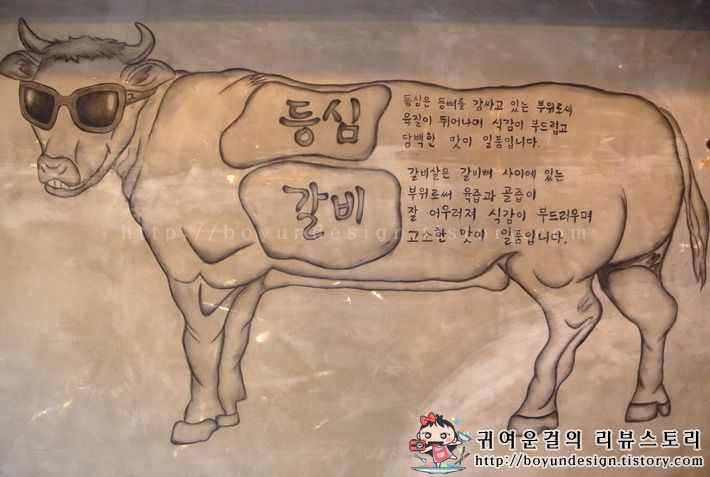 등심
등심은 등뼈를 감싸고 있는 부위로써
육질이 뛰어나며 식감이 부드럽고
담백한 맛이 일품입니다.
갈비
갈비살은 갈비뼈 사이에 있는
부위로써 육즙과 골즙이
잘 어우러져 식감이 부드러우며
고소한 맛이 일품입니다.
http://boyundesign.tistory.com
귀여운걸의 리뷰스토리
http://boyundesign.tistory.com